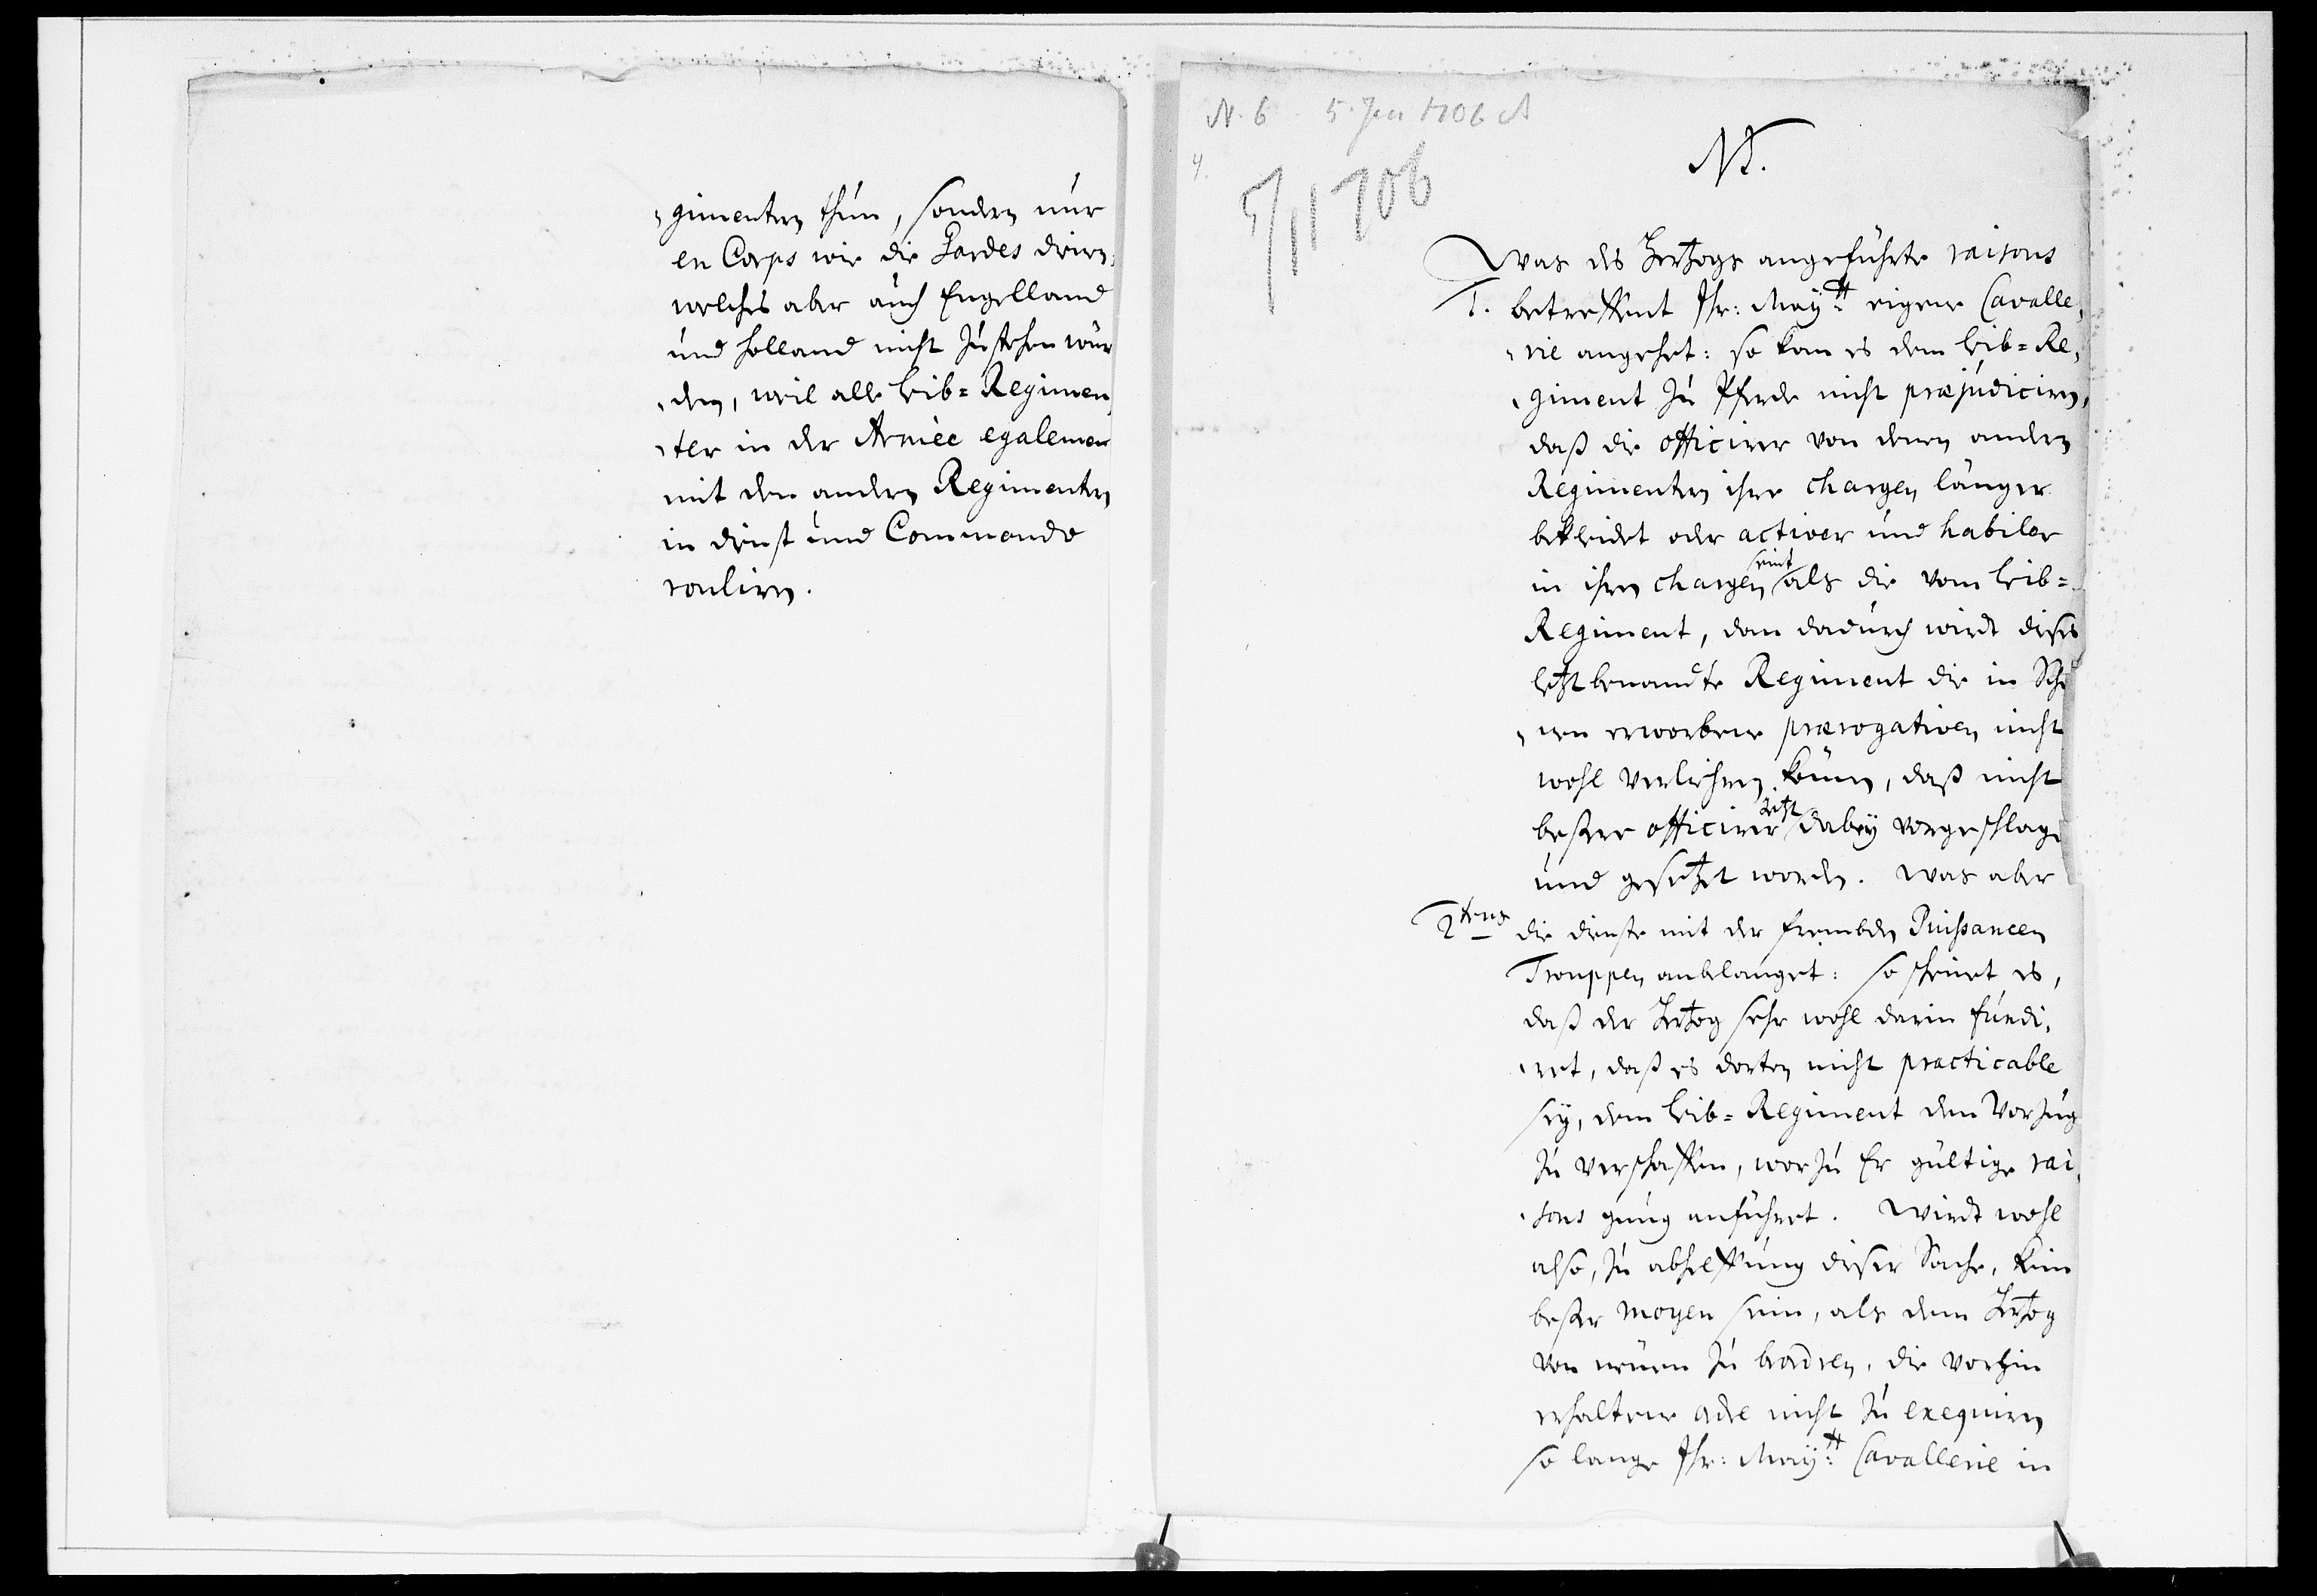 gimentern thun, sondern nur
en Corps wie die Gardes dienen,
welches aber auch Engelland
und Holland nicht zustehen wür
den, weil alle Leib=Regimen
ter in der Armée egalemen
mit den andern Regimentern
in dienst und Commando
rouliren.
N. 6. 5. Jan 1706 A
4.
5/11 706
NB.
Was des Hertzogs angeführte raisons
1. betreffent Ihr: Mayᵗᵗ: eigene Cavalle,
rie angehet: so kan es dem Leib=Re,
giment zu Pferde nicht præjudiciren,
daß die officirer von denen andern
Regimentern ihre chargen länger
bekleidet oder activer und habiler
in ihren chargen seint als die vom Leib=
Regiment, dan dadurch wirdt dises
letzt benandte Regiment die in
nen erworbene prærogativen nicht
wohl verliehren können, daß nicht
beßere officirer itzt dabeÿ vorgeschlage
und gesetzet worden. Was aber
2tens die dienste mit der frembden Puissancen
Trouppen anbelanget: so scheinet es,
daß der Hertzog sehr wohl darin fundi,
ret, daß es dorten nicht practicable
seÿ, dem Leib=Regiment den Vorzug
zu verschaffen, worzu Er gültige rai,
sons gnug anführet. Wirdt wohl
also, zu abhelffung diser Sache, kein
beßer moyen sein, als dem Hertzog
von neuen zu die vorhin
erhaltene nicht zu exequiren
so lange Ihr: Mayᵗᵗ: Cavallerie in